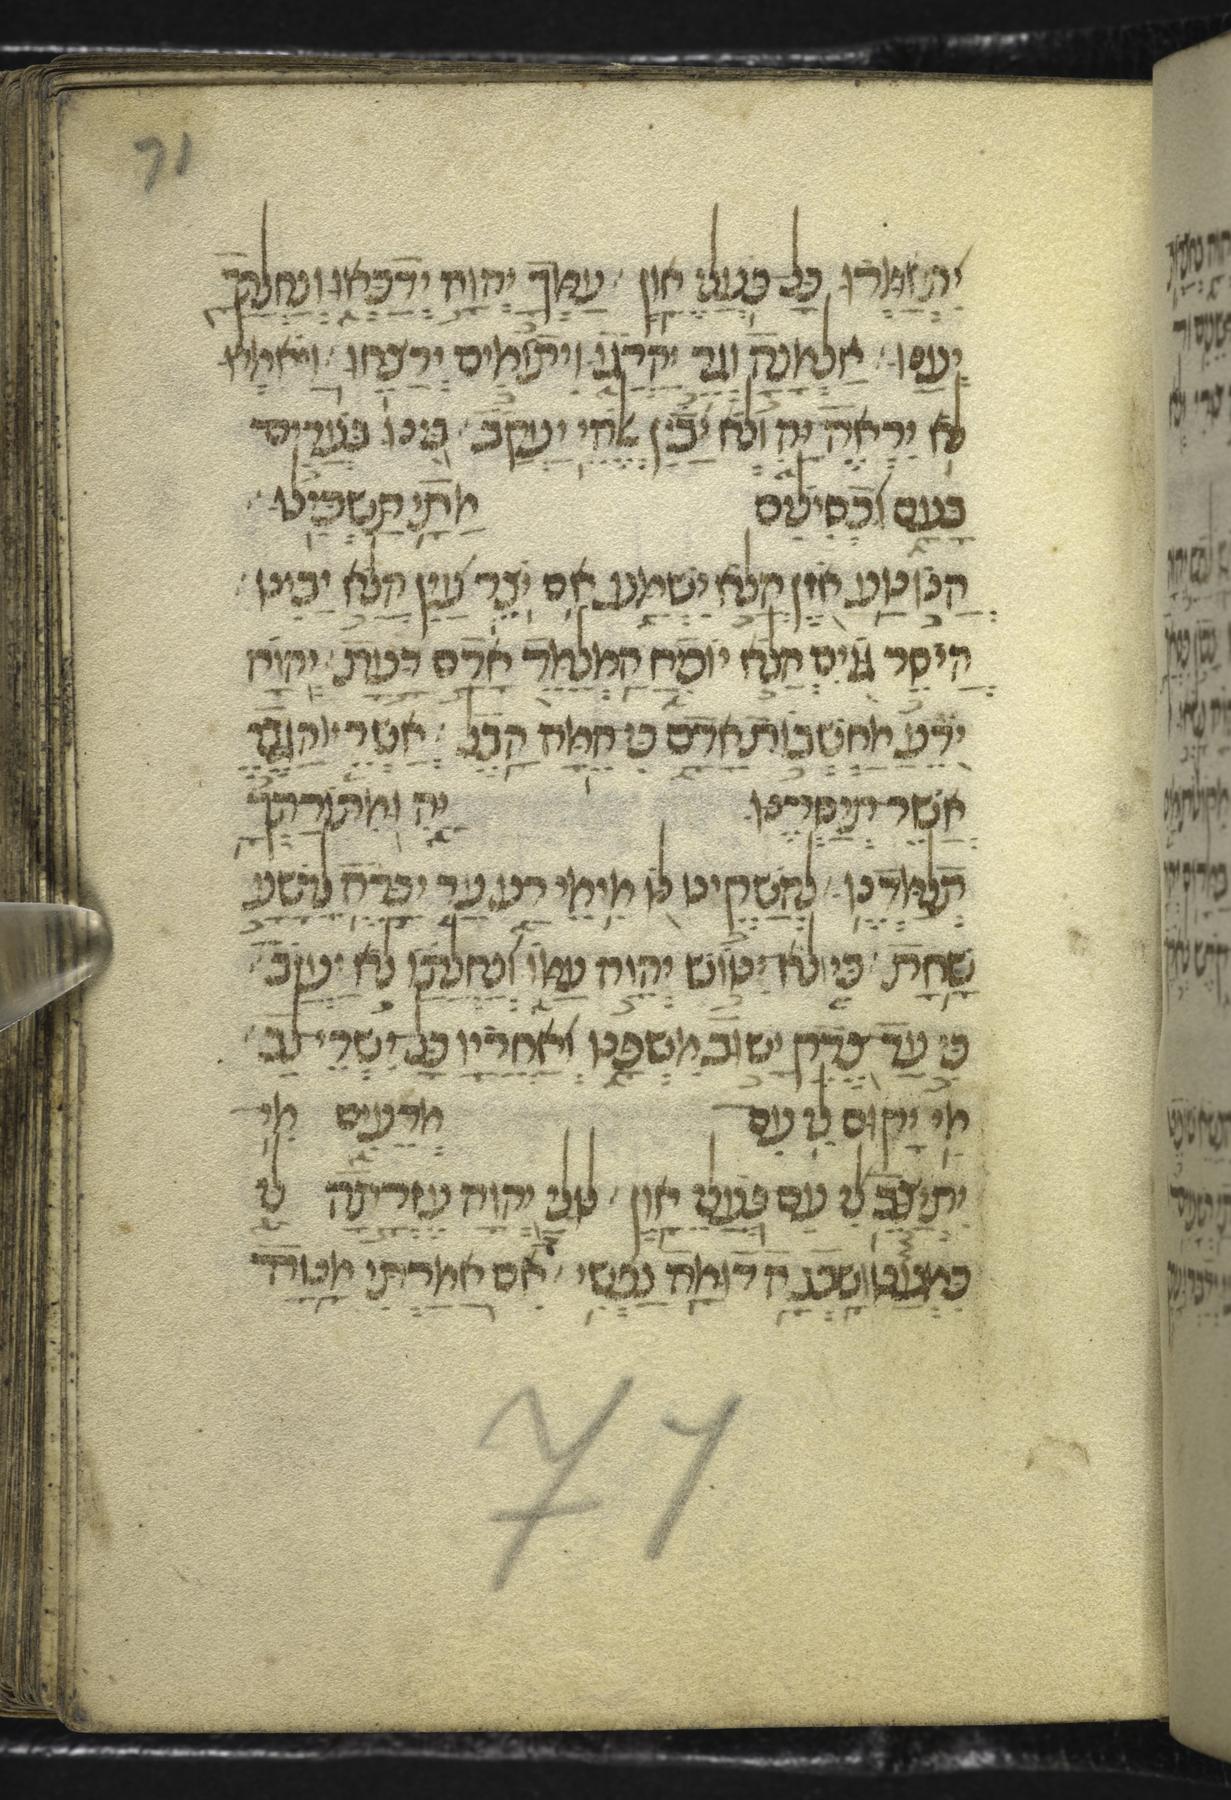 71
יתאמרו כל פעלי און עמך יהוה ידכאו ונחלתך
יענו אלמנה וגר יהרגו ויתומים ירצחו ויאמרו
לא יראה יה ולא יבין אלהי יעקב בינו בערים
בעם וכסילים מתי תשכילו
הנטע אזן הלא ישמע אם יצר עין הלא יביט
היסר גוים הלא יוכיח המלמד אדם דעת יהוה
ידע מחשבות אדם כי המה הבל אשרי הגבר
אשר תיסרנו יה ומתורתך
תלמדנו להשקיט לו מימי רע עד יכרה לרשע
שחת כי לא יטוש יהוה עמו ונחלתו לא יעזב
כי עד צדק ישוב משפט ואחריו כל ישרי לב
מי יקום לי עם מרעים מי
יתיצב לי עם פעלי און לולי יהוה עזרתה לי
כמעט שכנה דומה נפשי אם אמרתי מטה
71